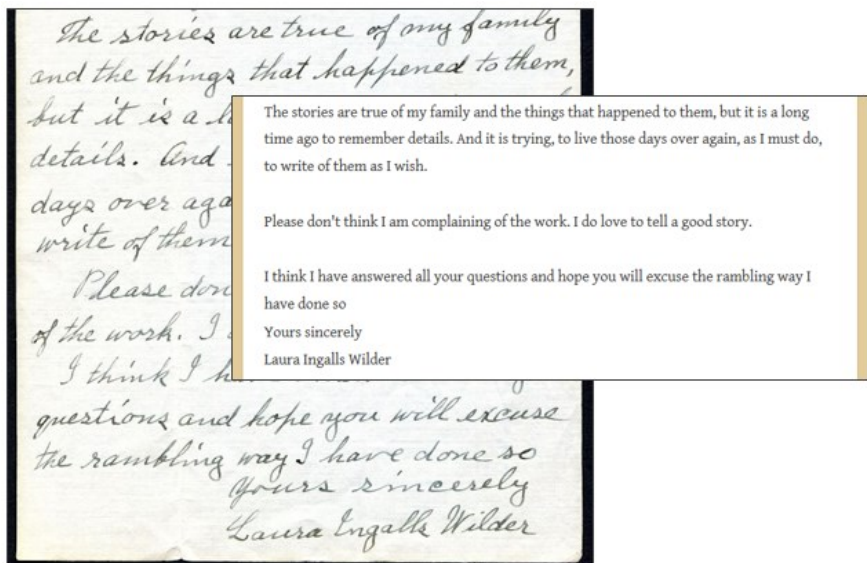 The stories are true of my family
and the things that happened to them,
but it is a
details. And
days over aga
write of them
Please don
of the work. I
I think I h
questions and hope you will excuse
the rambling way I have done so
Yours sincerely
Laura Ingalls Wilder
The stories are true of my family and the things that happened to them, but it is a long
time ago to remember details. And it is trying, to live those days over again, as I must do,
to write of them as I wish.
Please don't think I am complaining of the work. I do love to tell a good story.
I think I have answered all your questions and hope you will excuse the rambling way I
have done so
Yours sincerely
Laura Ingalls Wilder